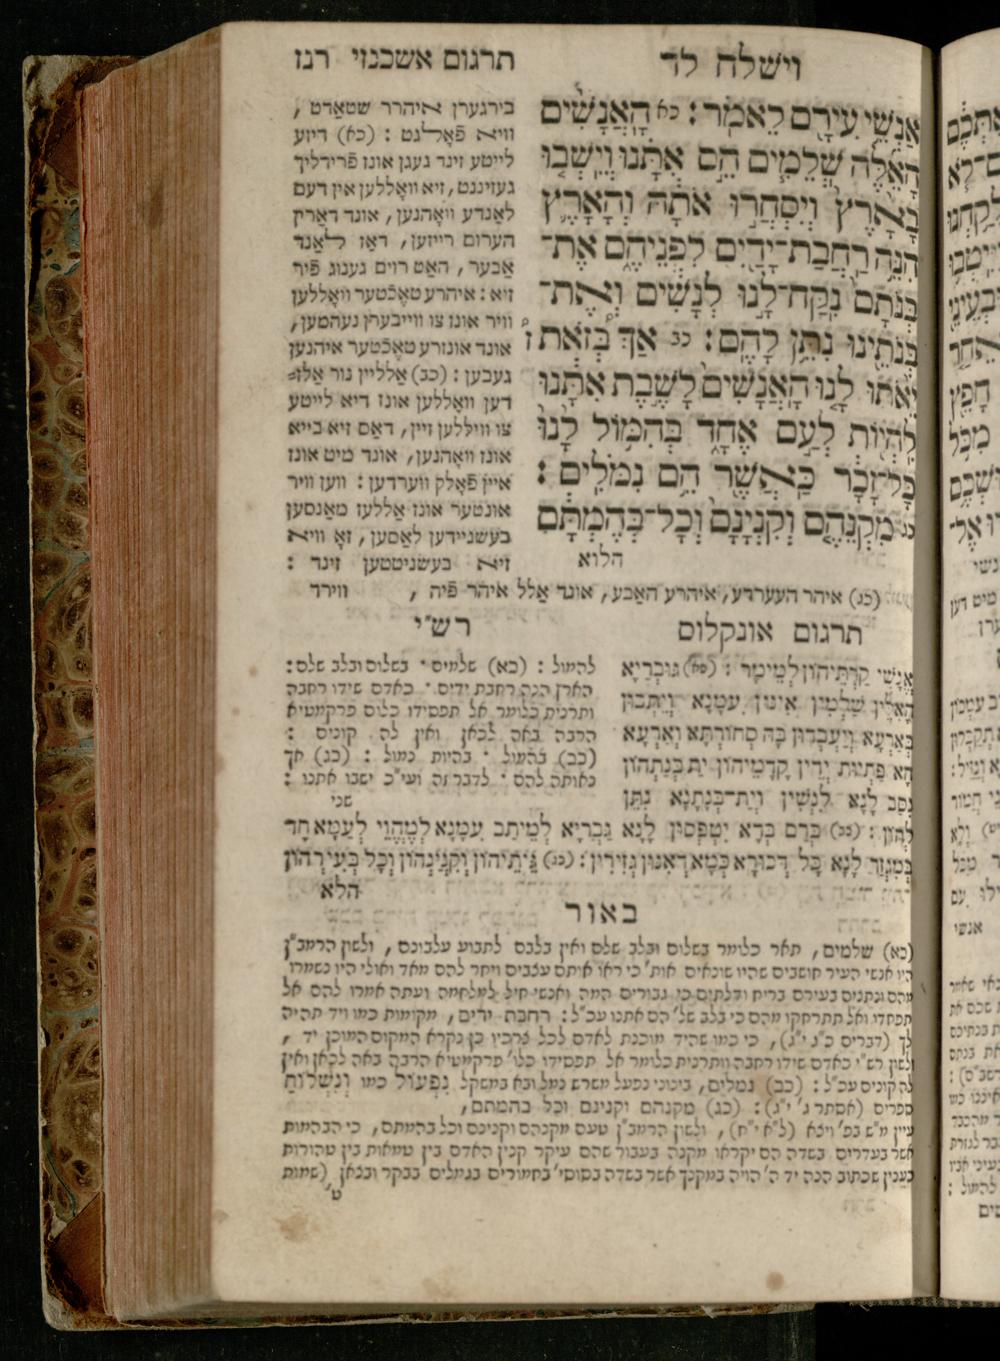 וישלח לד
תרגום אשכנזי רנז
אַנְשֵׁי עִירָם לֵאמֹר׃ כא הָאֲנָשִׁים
הָאֵלֶּה שְׁלֵמִים הֵם אִתָּנוּ וְיֵשְׁבוּ
בָאָרֶץ וְיִסְחֲרוּ אֹתָהּ וְהָאָרֶץ
הִנֵּה רַחֲבַת־יָדַיִם לִפְנֵיהֶם אֶת־
בְּנֹתָם נִקַּח־לָנוּ לְנָשִׁים וְאֶת־
בְּנֹתֵינוּ נִתֵּן לָהֶם׃ כב אַךְ בְּזֹאת
יֵאֹתוּ לָנוּ הָאֲנָשִׁים לָשֶׁבֶת אִתָּנוּ
לִהְיוֹת לְעַם אֶחָד בְּהִמּוֹל לָנוּ
כָּל־זָכָר כַּאֲשֶׁר הֵם נִמֹּלִים׃
כג מִקְנֵהֶם וְקִנְיָנָם וְכָל־בְּהֶמְתָּם
הלוא
בירגערן איהרר שטאָדט ,
וויא פֿאָלגט : (כא) דיזע
לייטע זינד געגן אונז פֿרידליך
געזיננט, זיא וואָללען אין דעם
לאַנדע וואָהנען, אונד דאַרין
הערום רייזען, דאַז לאַנד
אַבער, האַט רוים גענוג פֿיר
זיא : איהרע טאָכֿטער וואָללען
וויר אונז צו ווייבערן נעהמען,
אונד אונזרע טאָכֿטער איהנען
געבען : (כב) אַלליין נור אַלז־
דען וואָללען אונז דיא לייטע
צו ווילֿלען זיין, דאַס זיא בייא
אונז וואָהנען, אונד מיט אונז
איין פֿאָלק ווערדען : ווען וויר
אונטער אונז אַללעז מאַנסען
בעשניידען לאַסען, זאָ וויא
זיא בעשניטטען זינד :
(כג) איהר העערדע, איהרע האַבע, אונד אַלל איהר פֿיה , ווירד
תרגום אונקלוס
אֱנָשֵׁי קַרְתֵּיהוֹן לְמֵימַר : (כא) גּוּבְרַיָּא
הָאִלֵּין שָׁלְמִין אִינּוּן עִמָּנָא וְיִתְּבוּן
בְּאַרְעָא וְיַעְבְּדוּן בַּהּ סְחוֹרְתָּא וְאַרְעָא
הָא פַּתְיוּת יְדִין קֳדָמֵיהוֹן יַת בְּנָתְהוֹן
נִסַּב לָנָא לִנְשִׁין וְיַת־בְּנָתָנָא נִתֵּן
לְהוֹן : (כב) בְּרַם בְּדָא יִטְפְּסוּן לָנָא גֻּבְרַיָּא לְמֵיתַב עִמָּנָא לְמֶהֱוֵי לְעַמָּא חַד
בְּמִגְזַר לָנָא כָּל דְּכוּרָא כְּמָא דְאִנּוּן גְּזִירִין : (כג) גֵּיתֵיהוֹן וְקִנְיָנְהוֹן וְכָל בְּעִירְהוֹן
הלא
רש״י
להמול : (כא) שלמים · בשלום ובלב שלם :
הארץ הנה רחבת ידים · כאדם שידו רחבה
ותרנית כלומר אל תפסידו כלום פרקמטיא
הרבה באה לכאן ואין לה קונים :
(כב) בהמול · בהיות נמול : (כג) אך
נאותה להם · לדבר זה ועי״כ ישבו אתנו :
שני
באור
(כא) שלמים, תאר כלומר בשלום ובלב שלם ואין בלבם לתבוע עלבונם , ולשון הרמב״ן
היו אנשי העיר חושבים שהיו שונאים אות׳ כי ראו איתם עצבים ויחר להם מאד ואולי היו נשמרו
מהם ונתנים בעירם בריח ודלתים כי גבורים המה ואנשי חיל למלחמה ועתה אמרו להם אל
תפחדו ואל תתרחקו מהם כי בלב של׳ הם אתנו עכ״ל : רחבת ידים, מקומות כמו ויד תהיה
לך (דברים כ״ג י״ג), כי כמו שהיד מוכנת לאדם לכל צרכיו כן נקרא המקום המוכן יד ,
ולשון רש״י כאדם שידו רחבה וותרנית כלומר אל תפסידו כלו׳ פרקמטיא הרבה באה לכאן ואין
לה קונים עכ״ל : (כב) נמלים, בינוני נפעל משרש נמל ובא במשקל נִפְעוֹל כמו וְנִשְׁלוֹחַ
ספרים (אסתר ג׳ י״ג) : (כג) מקנהם וקנינם וכל בהמתם,
עיין מ״ש בפ׳ ויצא (ל״א י״ח) , ולשון הרמב״ן טעם מקנהם וקנינם וכל בהמתם, כי הבהמות
אשר בעדרים בשדה הם יקראו מקנה בעבור שהם עיקר קנין האדם בין טמאות בין טהורות
כענין שכתוב הנה יד ה׳ הויה במקנך אשר בשדה בסוסי׳ בחמורים בגמלים בבקר ובצאן (שמות
ט׳